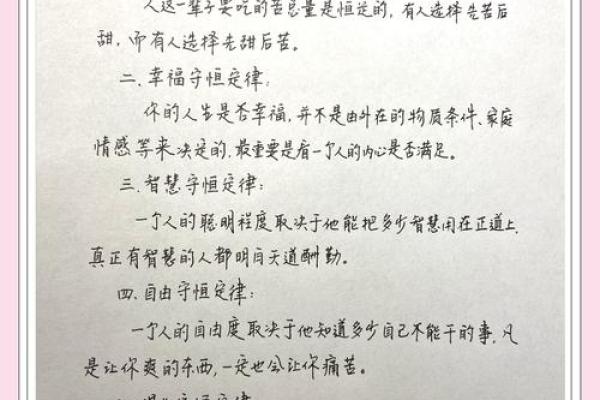 人这一辈子要吃的苦总量是恒定的,有人选择先苦后
甜,而有人选择先甜后苦。
二.幸福守恒定律:
你的人生是否幸福,并不是由外在的物质条件、家庭
情感等来决定的,最重要是看一个人的内心是否满足。
三.智慧守恒定律:
一个人的聪明程度取决于他能把多少智慧用在正道上,
真正有智慧的人都明白天道酬勤。
四.自由守恒定律:
一个人的自由度取决于他知道多少自己不能干的事,凡
是让你爽的东西,一定也会让你痛苦。
守恒定律: